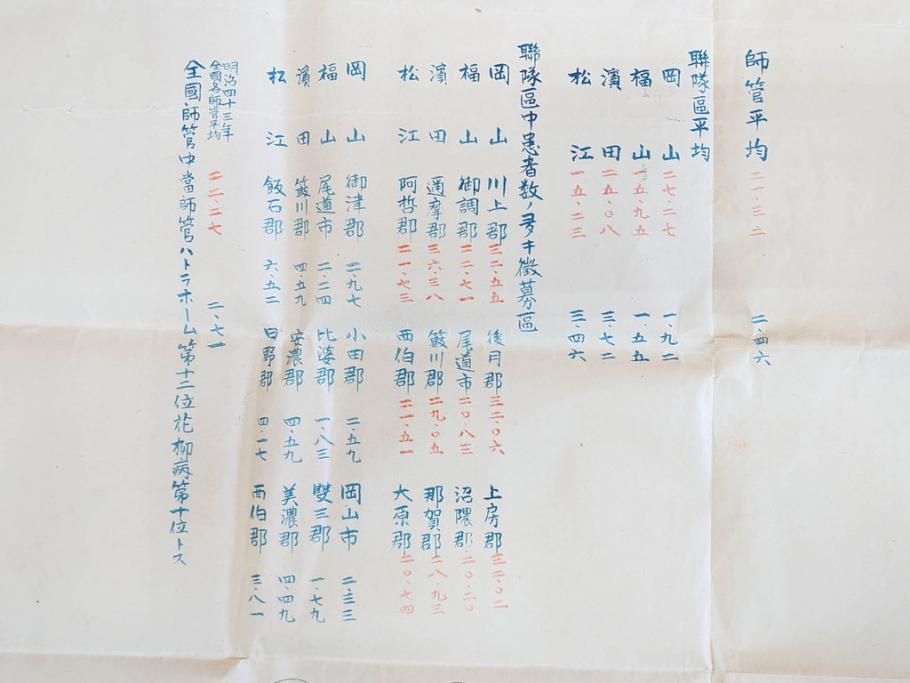 師管平均 二一・三二 二・四六
聯隊區平均
岡山 二七・二七 一・九二
福山 一五・九五 一・五五
濱田 二五・〇八 三・七二
松江 一五・二三 三・四六
聯隊區中患者数ノ多キ徴募區
岡山 川上郡 三二・五五 後月郡 三二・〇六 上房郡 三二・〇二
福山 御調郡 二二・七一 尾道市 二〇・八三 沼隈郡 二〇・二〇
濱田 邇摩郡 三六・三八 簸川郡 二九・〇五 那賀郡 二八・九三
松江 阿哲郡 二一・七三 西伯郡 二一・五一 大原郡 二〇・七四
岡山 御津郡 二・九七 小田郡 二・五九 岡山市 二・三三
福山 尾道市 二・二四 比婆郡 一・八三 雙三郡 一・七九
濱田 簸川郡 四・五九 安濃郡 四・五九 美濃郡 四・四九
松江 飯石郡 六・五二 日野郡 四・一七 西伯郡 三・八一
明治四十三年
全國各師管平均 二二・二七 二・七一
全國師管中當師管ハトラホーム第十二位花柳病第十位トス